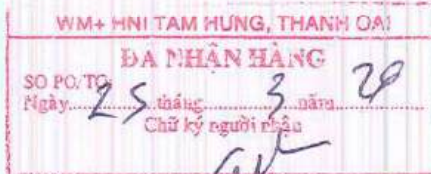 WM+ HNI TAM HƯNG, THANH OAI
ĐÃ NHẬN HÀNG
SO PO/TO:
Ngày 25 tháng 3 năm 26
Chữ ký người nhận